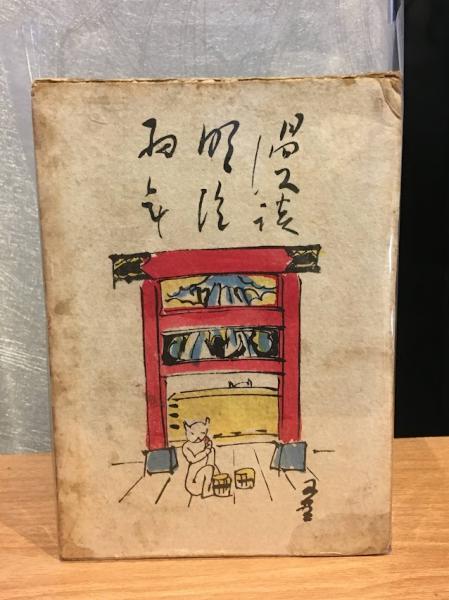 漫談
明治
初年